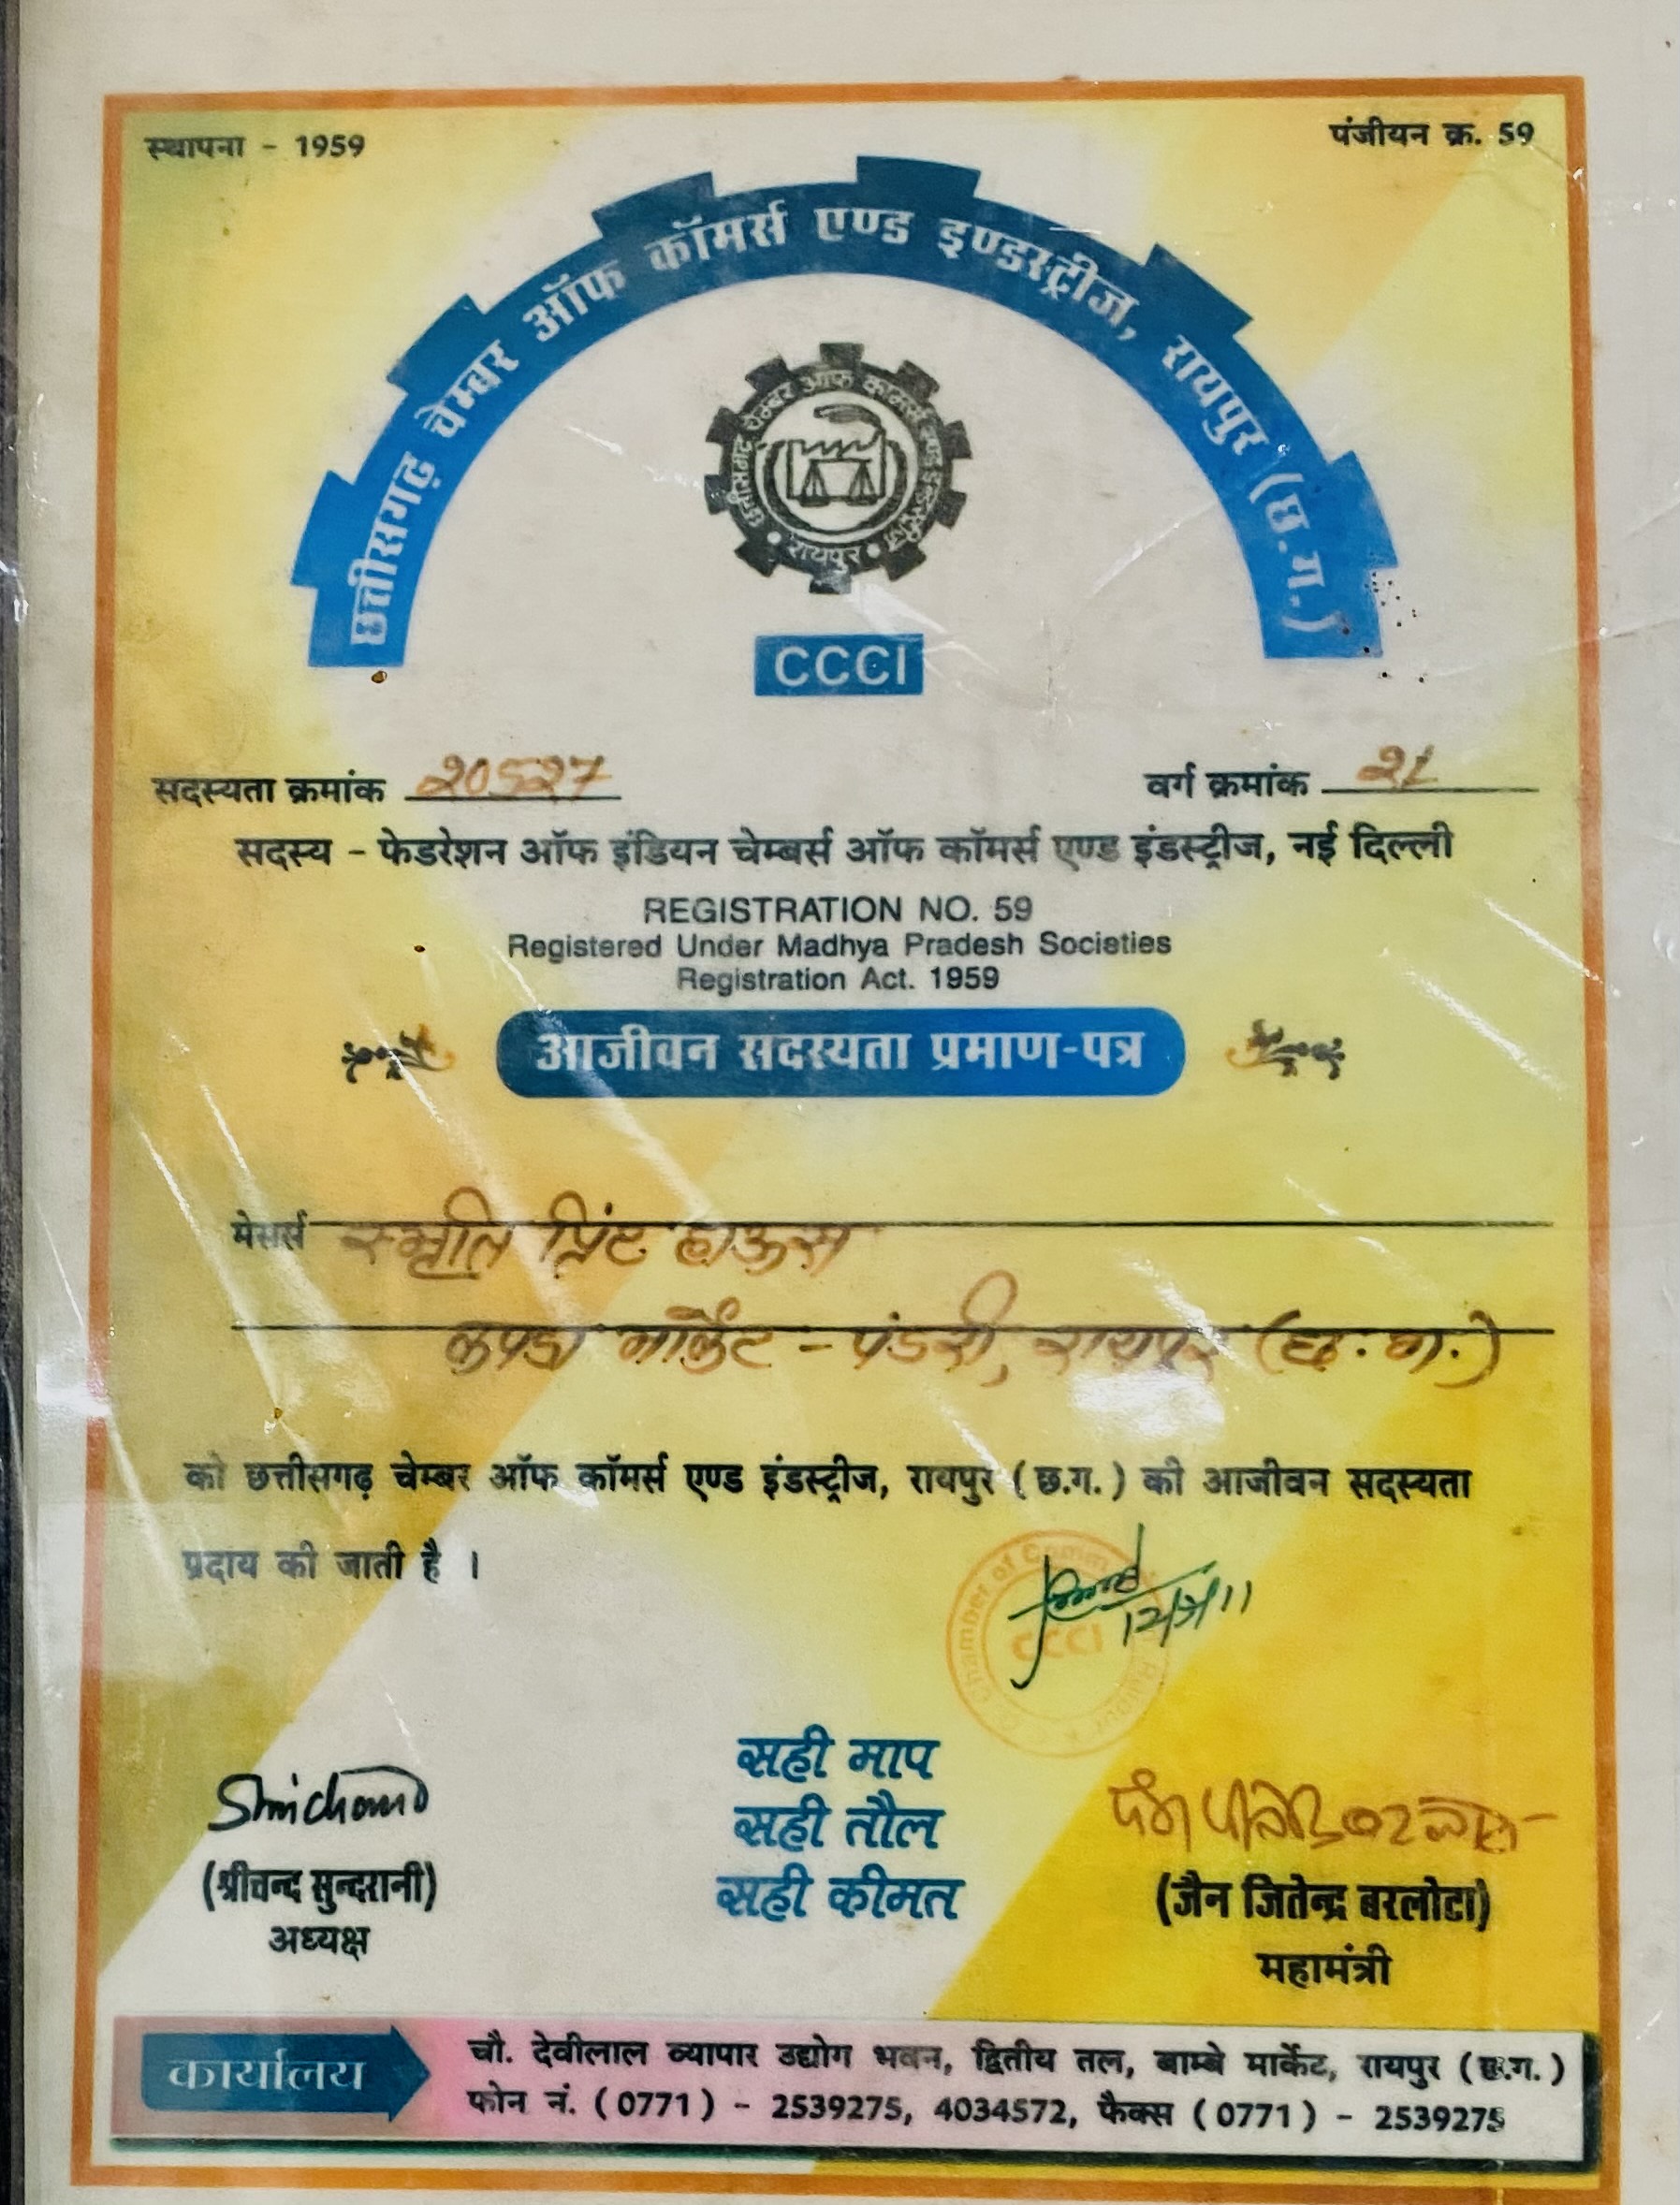 स्थापना - 1959
पंजीयन क्र. 59
छत्तीसगढ़ चेम्बर ऑफ कॉमर्स एण्ड इण्डस्ट्रीज, रायपुर (छ.ग.)
छत्तीसगढ़ चेम्बर ऑफ कामर्स एण्ड इन्डस्ट्रीज
• रायपुर •
CCCI
सदस्यता क्रमांक 20527
वर्ग क्रमांक 21
सदस्य - फेडरेशन ऑफ इंडियन चेम्बर्स ऑफ कॉमर्स एण्ड इंडस्ट्रीज, नई दिल्ली
REGISTRATION NO. 59
Registered Under Madhya Pradesh Societies
Registration Act. 1959
आजीवन सदस्यता प्रमाण-पत्र
मेसर्स प्रिंट हाऊस
कपड़ा मार्केट - पंडरी, रायपुर (छ.ग.)
को छत्तीसगढ़ चेम्बर ऑफ कॉमर्स एण्ड इंडस्ट्रीज, रायपुर (छ.ग.) की आजीवन सदस्यता
प्रदाय की जाती है ।
Chamber of Comm
CCCI
सही माप
सही तौल
सही कीमत
Shrichand
(श्रीचन्द सुन्दरानी)
अध्यक्ष
(जैन जितेन्द्र बरलोटा)
महामंत्री
कार्यालय
चौ. देवीलाल व्यापार उद्योग भवन, द्वितीय तल, बाम्बे मार्केट, रायपुर (छ.ग.)
फोन नं. (0771) - 2539275, 4034572, फैक्स (0771) - 2539275